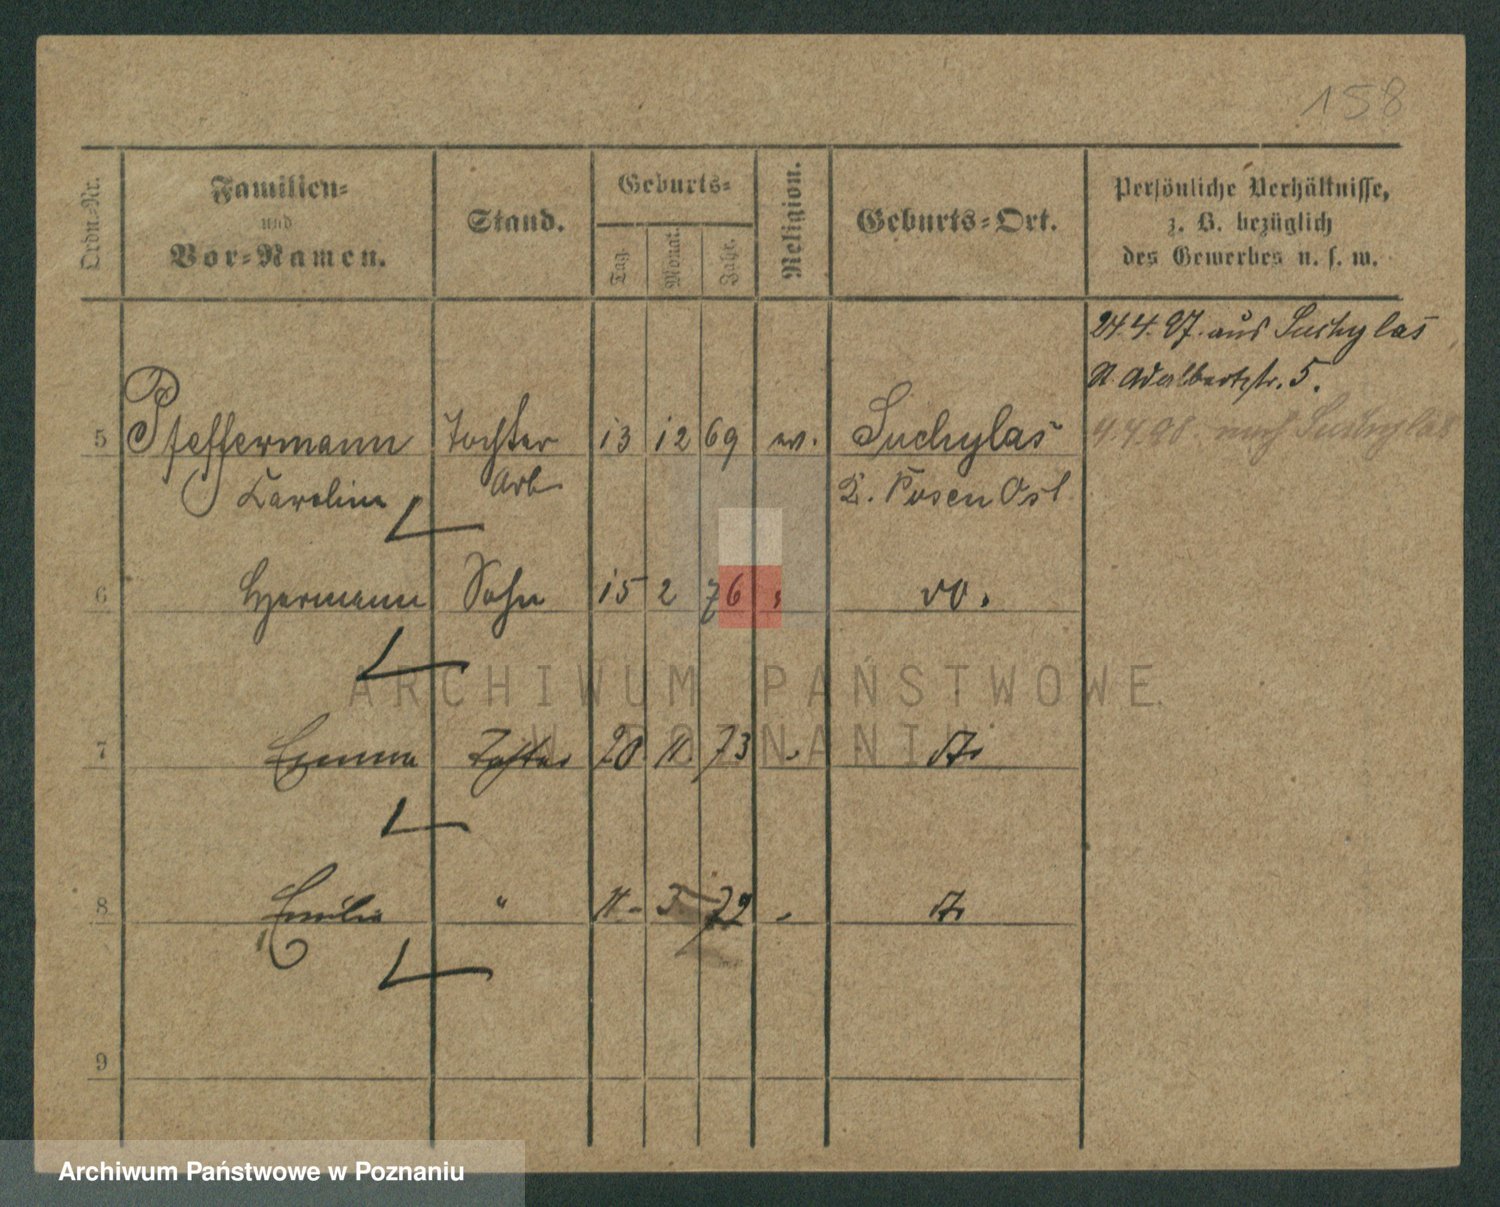 158
Ordn.-Nr.
Familien-
und
Vor-Namen.
Stand.
Geburts-
Tag.
Monat.
Jahr.
Religion.
Geburts-Ort.
Persönliche Verhältnisse,
z. B. bezüglich
des Gewerbes u. s. w.
24.4.97. aus Suchylas
St. Adalbertstr. 5.
5 Pfeffermann Tochter 13 12 69 ev. Suchylas 4.4.98. nach Suchylas
Karolina Arb K. Posen Ost
6 Hermann Sohn 15 2 76 " do.
ARCHIWUM PAŃSTWOWE
W POZNANIU
7 Emma Tochter 20. 11. 73 " do
8 Emilie " 11 - 5 72 " do
9
Archiwum Państwowe w Poznaniu